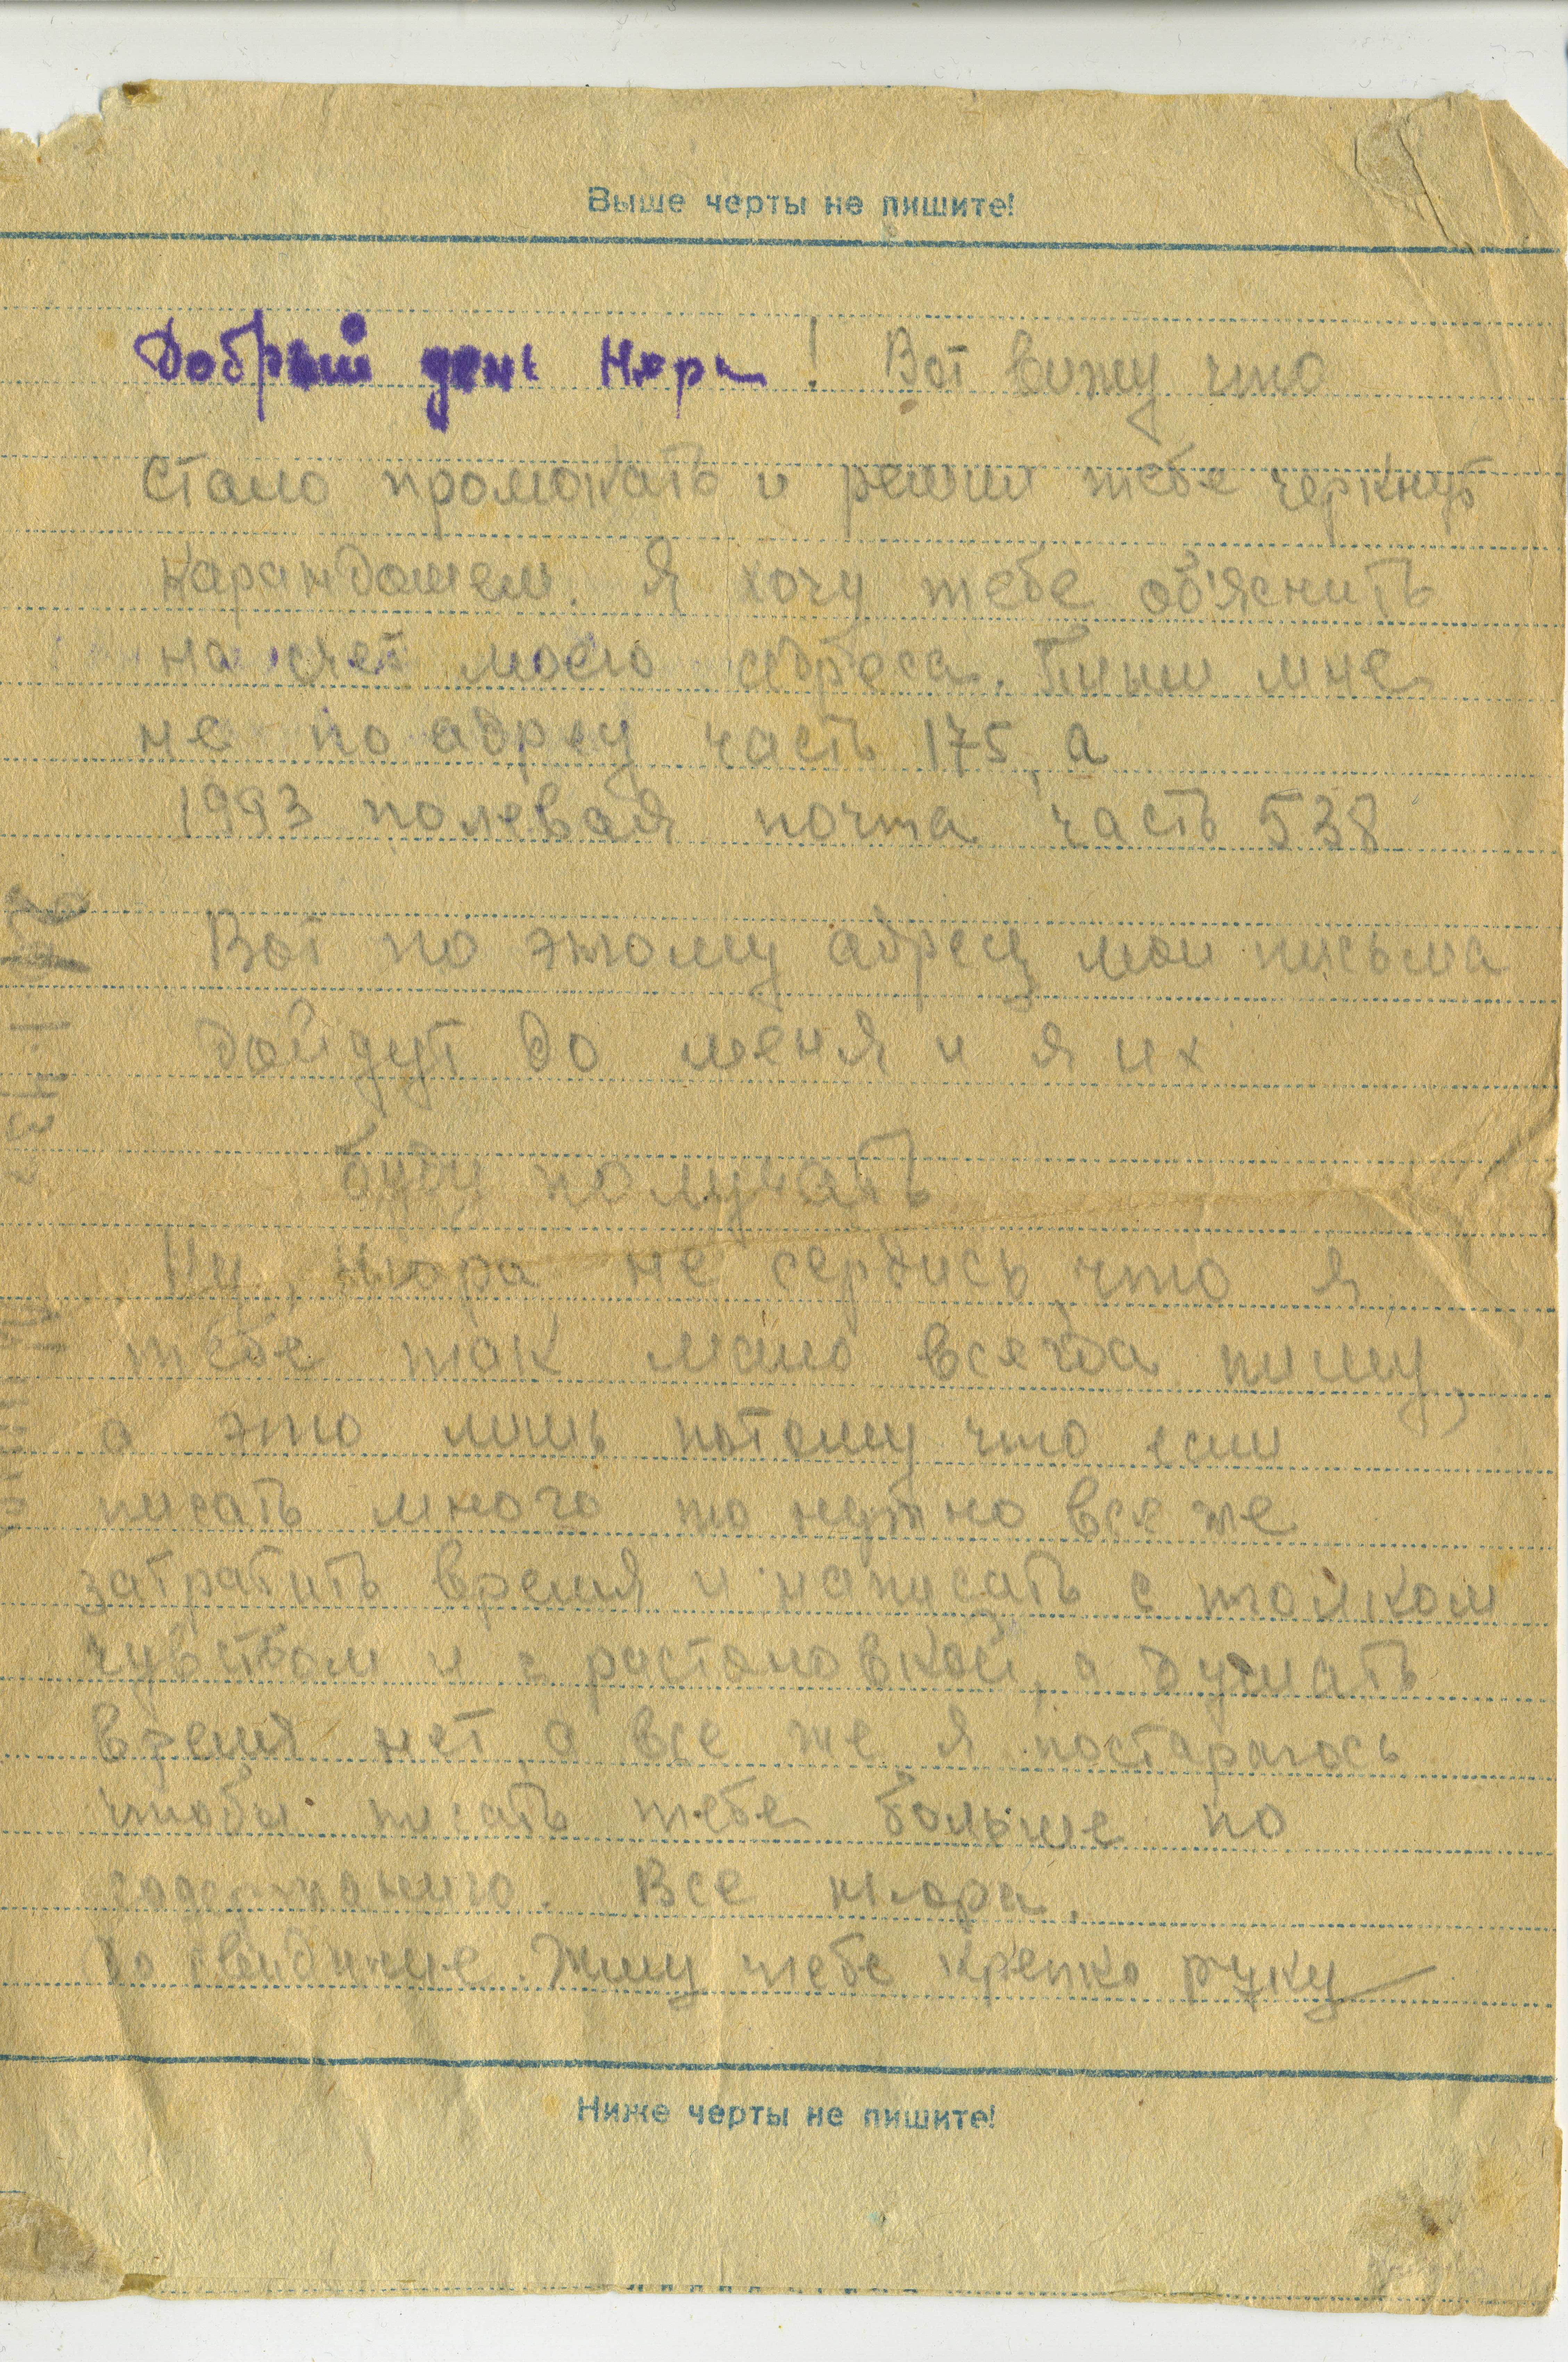 Выше черты не пишите!
Добрый день Нюра! Вот вижу что
стало промокать и решил тебе черкнуть
карандашем. Я хочу тебе об'яснить
на счет моего адреса. Пиши мне
не по адресу часть 175, а
1993 полевая почта часть 538
Вот по этому адресу мои письма
дойдут до меня и я их
буду получать
Ну, Нюра не сердись, что я
тебе так мало всегда пишу,
а это лишь потому что если
писать много то нужно все же
затратить время и написать с толком
чувством и с растановкой, а думать
время нет, а все же я постараюсь
чтобы писать тебе больше по
содержанию. Все Нюра.
До свидание. Жму тебе крепко руку
Ниже черты не пишите!